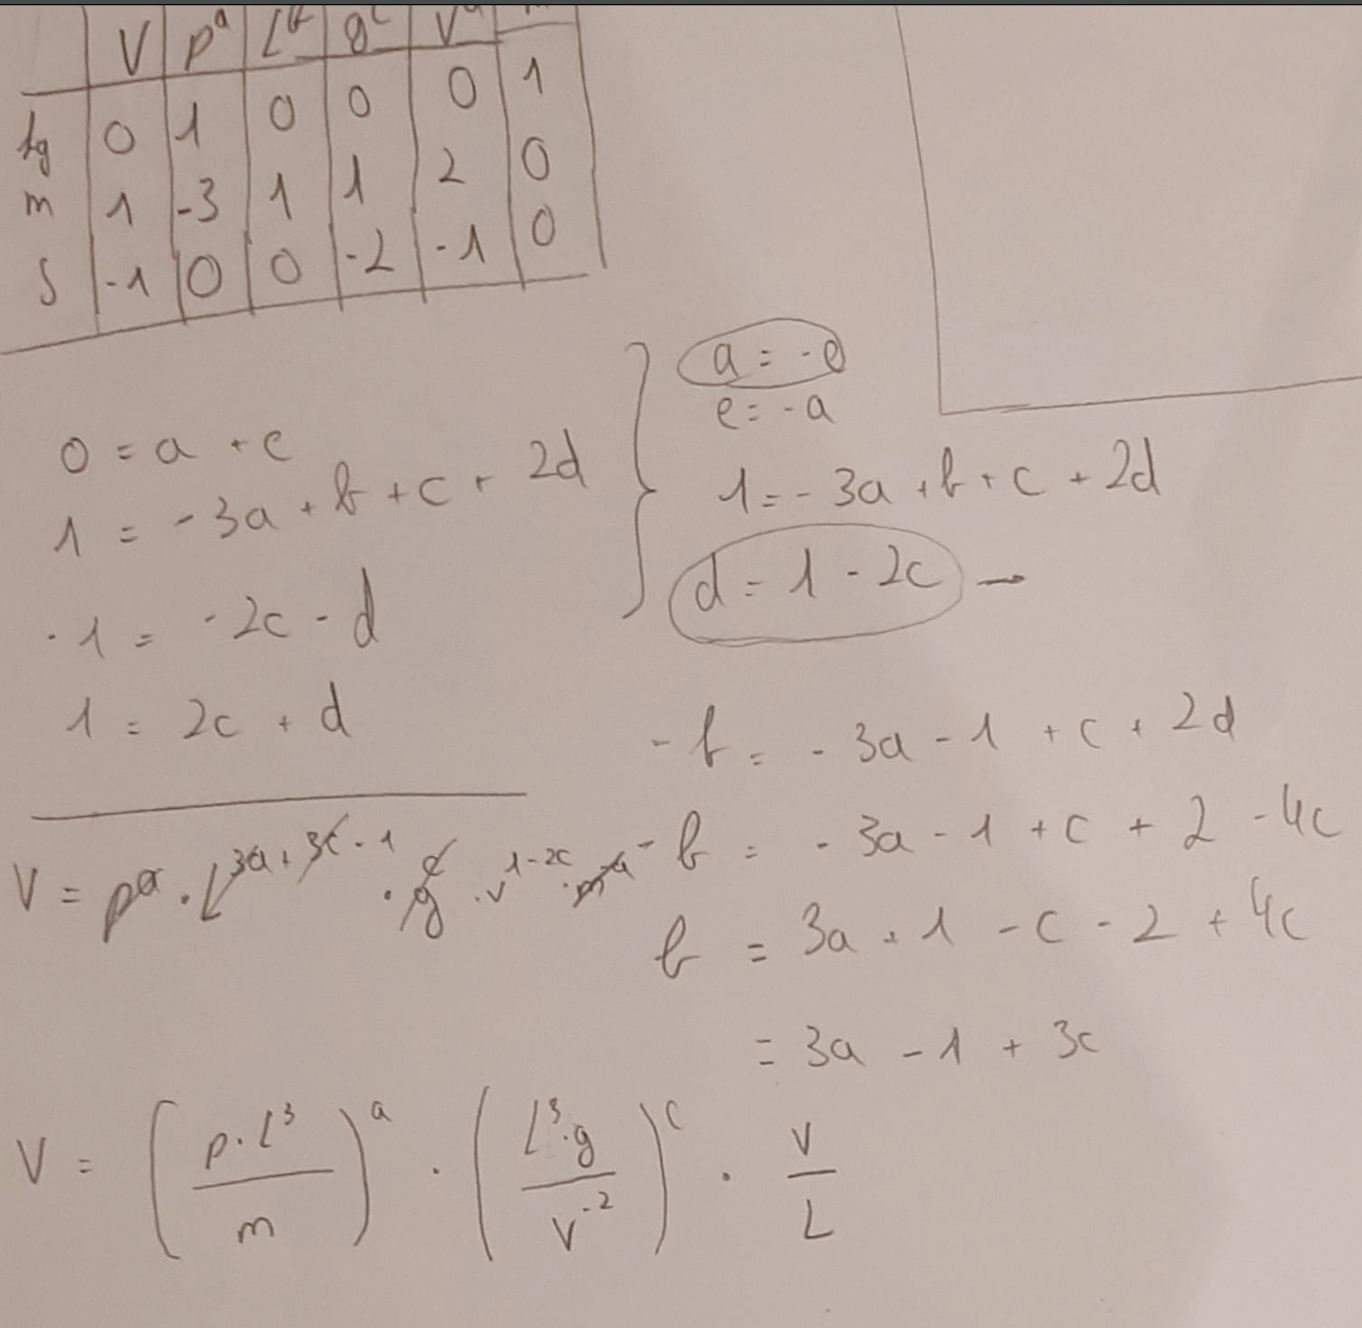 V p^a L^b g^c v^d
kg 0 1 0 0 0 1
m 1 -3 1 1 2 0
s -1 0 0 -2 -1 0
0 = a + e
1 = -3a + b + c + 2d
-1 = -2c - d
1 = 2c + d
a = -e
e = -a
1 = -3a + b + c + 2d
d = 1 - 2c →
-b = -3a - 1 + c + 2d
-b = -3a - 1 + c + 2 - 4c
b = 3a + 1 - c - 2 + 4c
= 3a - 1 + 3c
V = p^a · L^{3a + 3c - 1} · g^c · v^{1-2c} · m^{-a}
V = (p · L^3 / m)^a · (L^3 · g / v^{-2})^c · v / L